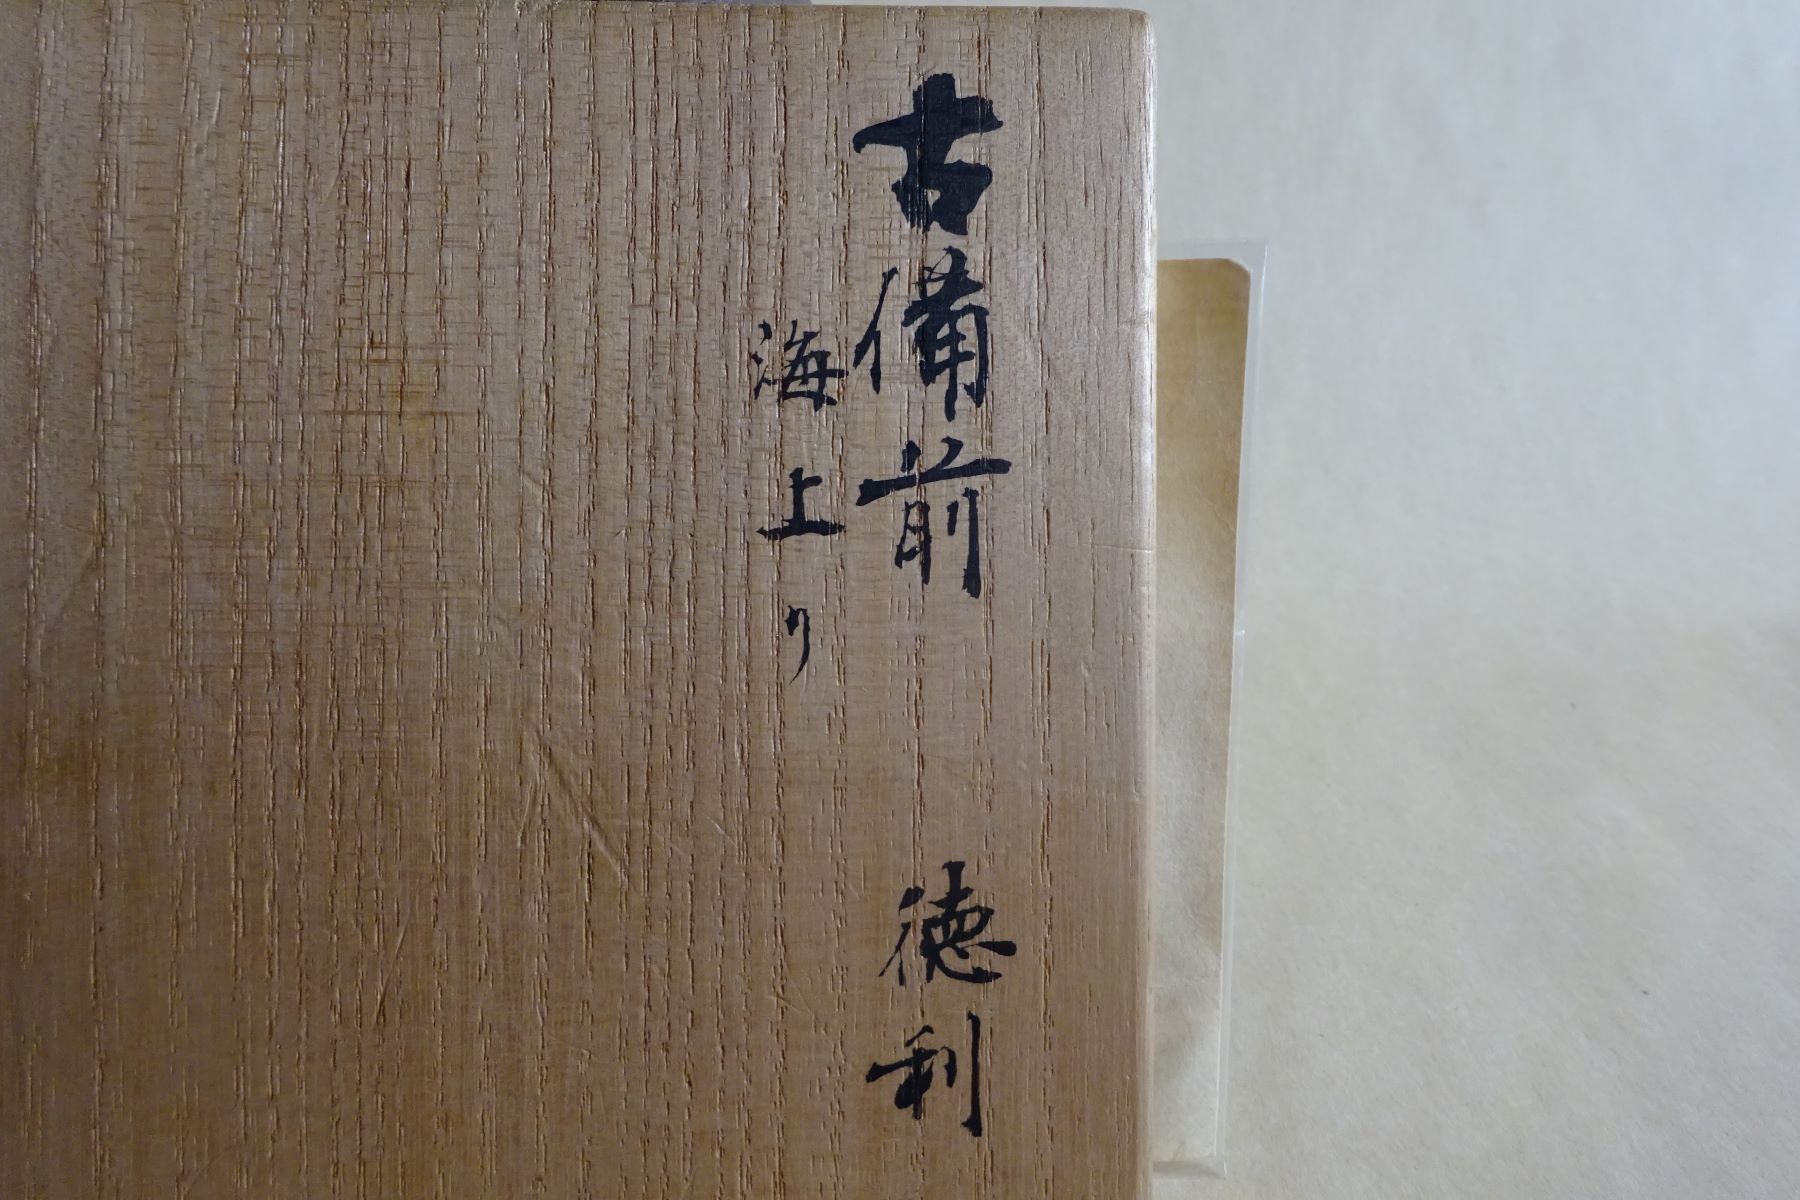 古備前 徳利
海上り